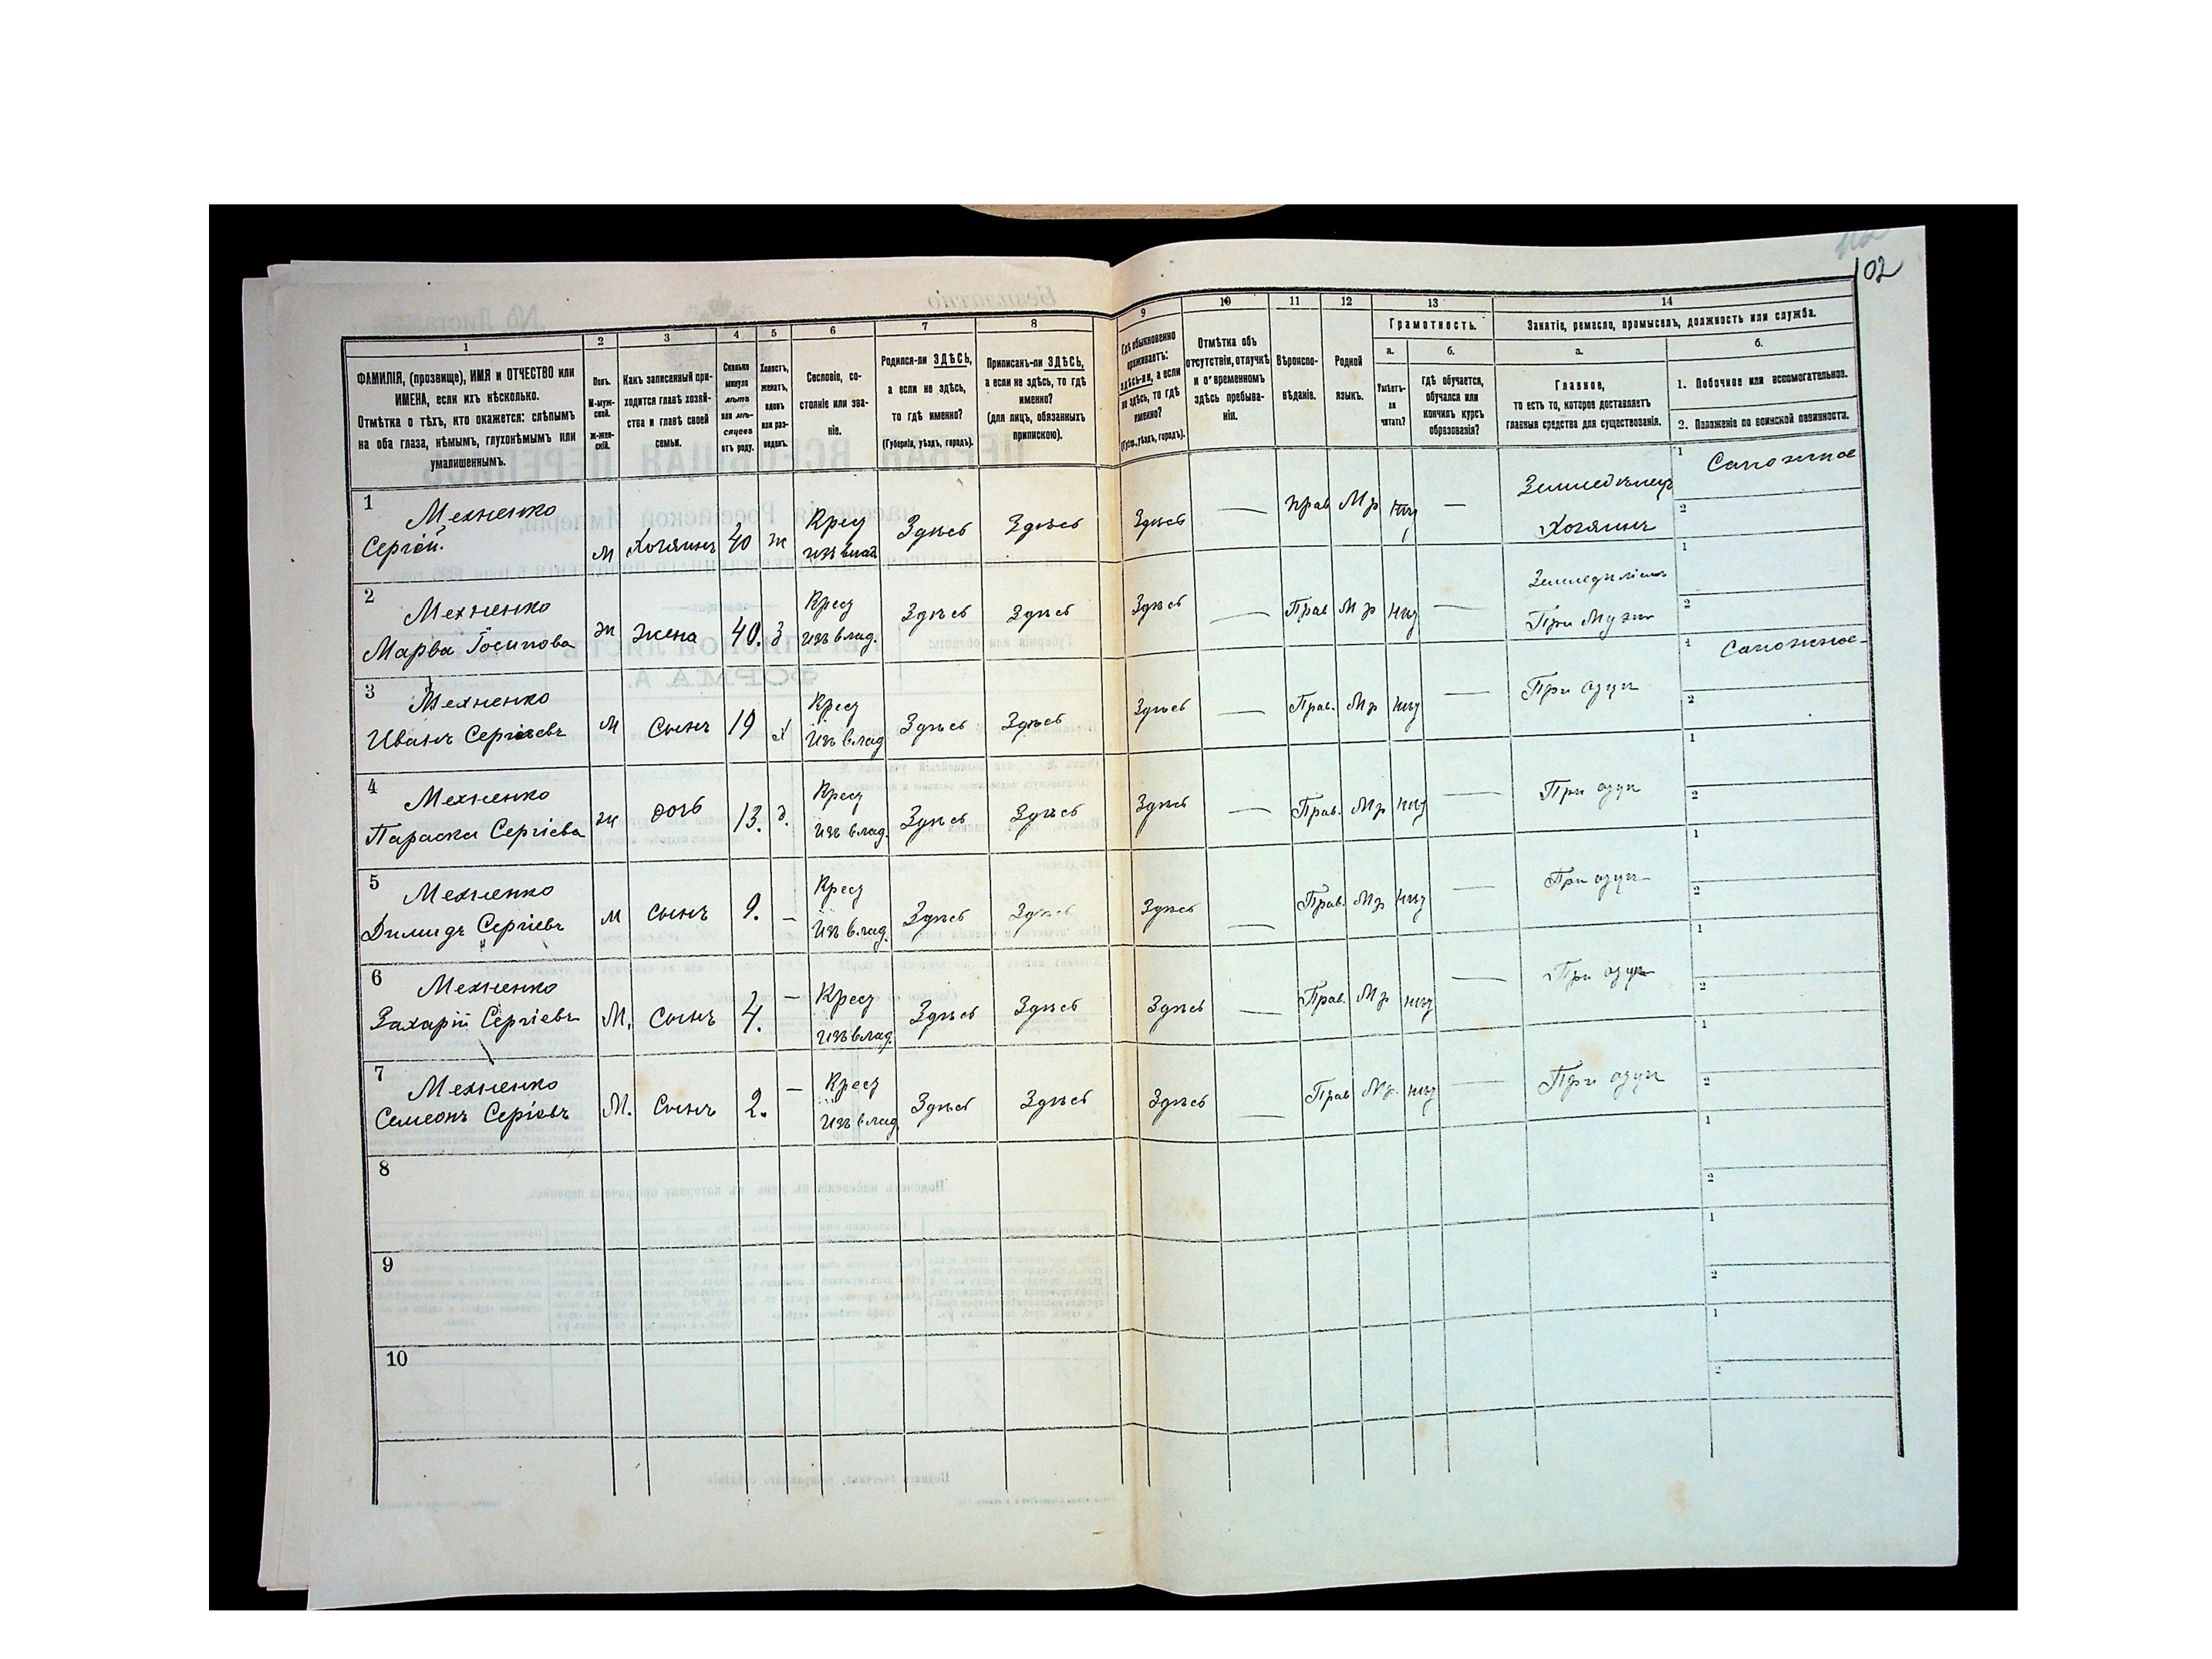 102
1 2 3 4 5 6 7 8 9 10 11 12 13 14
ФАМИЛІЯ, (прозвище), ИМЯ и ОТЧЕСТВО или
ИМЕНА, если ихъ нѣсколько.
Отмѣтка о тѣхъ, кто окажется: слѣпымъ
на оба глаза, нѣмымъ, глухонѣмымъ или
умалишеннымъ.
Полъ.
М-муж-
ской.
Ж-жен-
скій.
Какъ записанный при-
ходится главѣ хозяй-
ства и главѣ своей
семьи.
Сколько
минуло
лѣтъ
или мѣ-
сяцевъ
отъ роду.
Холостъ,
женатъ,
вдовъ
или раз-
веденъ.
Сословіе, со-
стояніе или зва-
ніе.
Родился-ли ЗДѢСЬ,
а если не здѣсь,
то гдѣ именно?
(Губернія, уѣздъ, городъ).
Приписанъ-ли ЗДѢСЬ,
а если не здѣсь, то гдѣ
именно?
(для лицъ, обязанныхъ
припискою).
Гдѣ обыкновенно
проживаетъ:
здѣсь-ли, а если
не здѣсь, то гдѣ
именно?
(Губ., уѣздъ, городъ).
Отмѣтка объ
отсутствіи, отлучкѣ
и о временномъ
здѣсь пребыва-
ніи.
Вѣроиспо-
вѣданіе.
Родной
языкъ.
Грамотность.
а. б.
Умѣетъ-
ли
читать?
Гдѣ обучается,
обучался или
кончилъ курсъ
образованія?
Занятіе, ремесло, промыселъ, должность или служба.
а. б.
Главное,
то есть то, которое доставляетъ
главныя средства для существованія.
1. Побочное или вспомогательное.
2. Положеніе по воинской повинности.
1 Мехненко
Сергій. м Хозяинъ 40 ж Крес изъ влад. Здѣсь Здѣсь Здѣсь — Прав Мр — Земледѣлецъ Хозяинъ 1 Сапожное 2
2 Мехненко
Марва Іосипова ж жена 40. з Крес изъ влад. Здѣсь Здѣсь Здѣсь — Прав Мр — При Мужѣ 1 2
3 Мехненко
Иванъ Сергіевъ м Сынъ 19 х Крес Изъ влад Здѣсь Здѣсь Здѣсь — Прав. Мр — При отцѣ 1 Сапожное 2
4 Мехненко
Параска Сергіева ж дочь 13. д. Крес изъ влад. Здѣсь Здѣсь Здѣсь — Прав. Мр — При отцѣ 1 2
5 Мехненко
Сергіевъ м сынъ 9. — Крес Изъ влад. Здѣсь Здѣсь Здѣсь — Прав. Мр — При отцѣ 1 2
6 Мехненко
Захарій Сергіевъ М. Сынъ 4. — Крес изъ влад. Здѣсь Здѣсь Здѣсь — Прав. Мр — При отцѣ 1 2
7 Мехненко
Семеонъ Сергіевъ М. Сынъ 2. — Крес Изъ влад. Здѣсь Здѣсь Здѣсь — Прав Мр. — При отцѣ 1 2
8 1 2
9 1 2
10 1 2